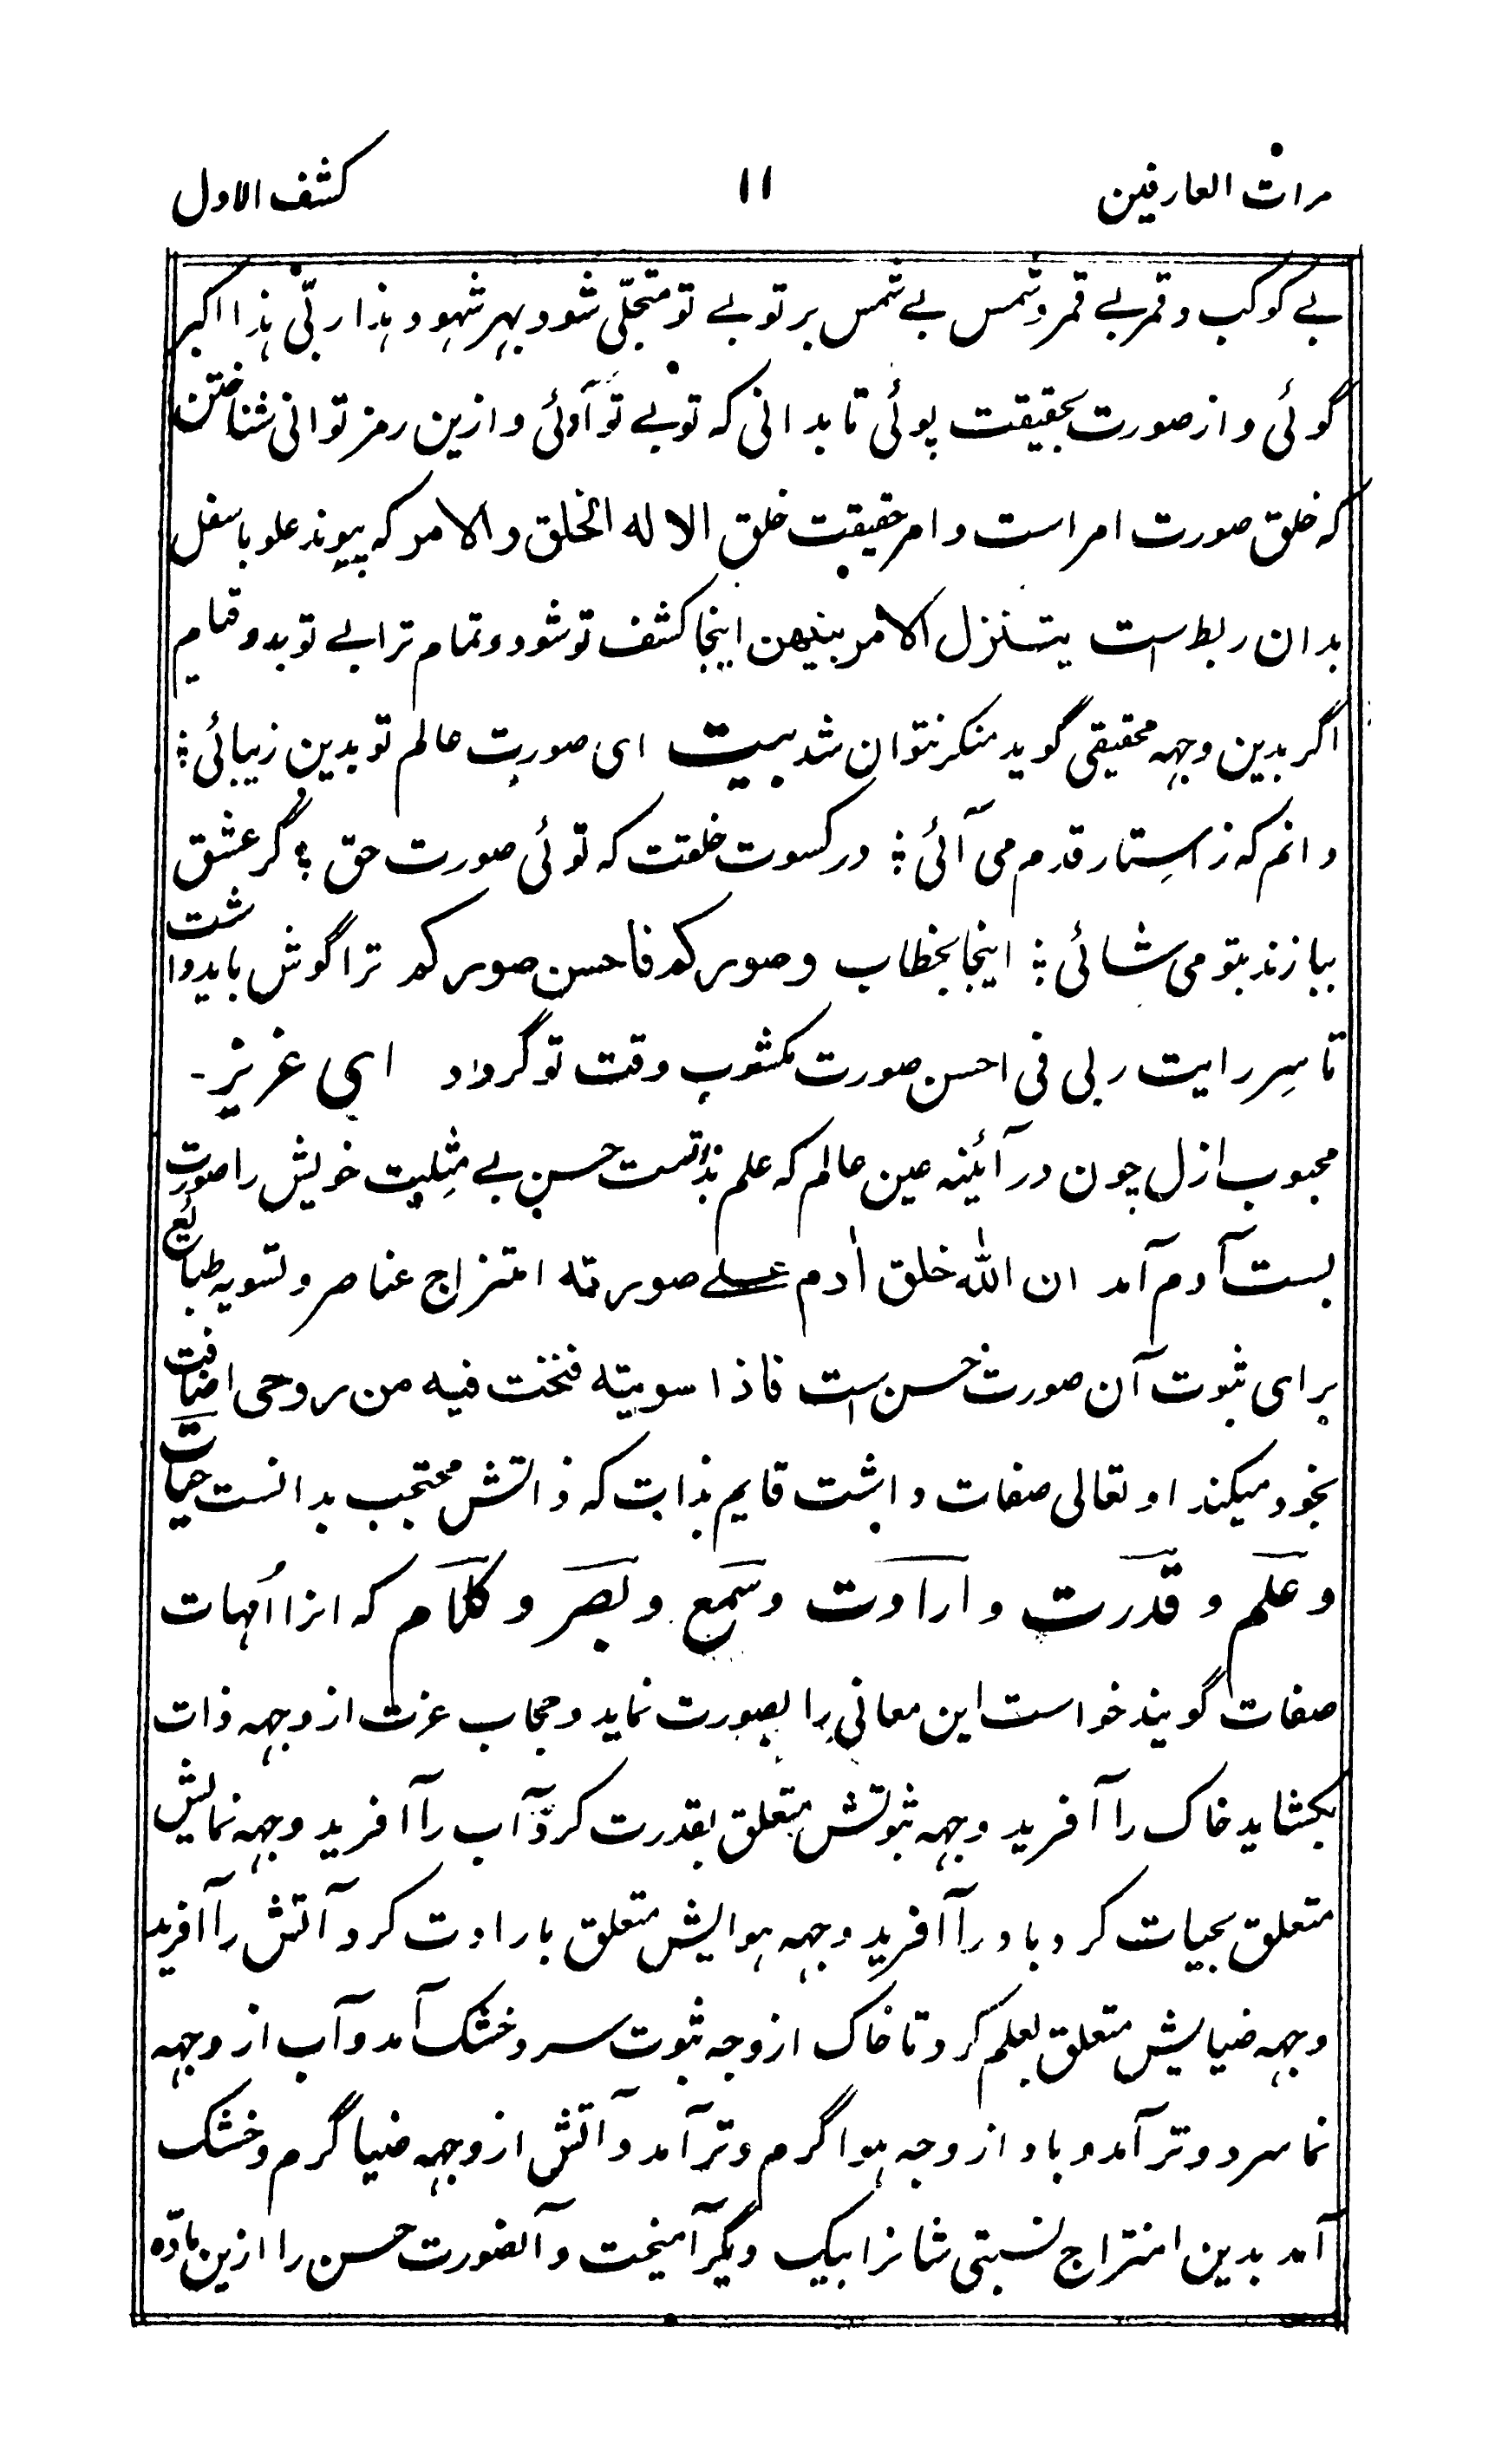 مرات العارفین ۱۱ کشف الاول
بے کوکب و قمر بے قمر و شمس بے شمس بر تو بے تو متجلّی شود بہر شہود ہذا ربّی ہذا اکبر
گوئی و از صورت بحقیقت پوئی تا بدانی کہ تو بے تو آوئی و ازین رمز توانی شناختن
کہ خلق صورت امر است و امر حقیقت خلق الا له الخلق والامر کہ پیوند علو با سفل
بدان ربط است یتنزل الامر بینهن اینجا کشف تو شود و تمام ترا بے تو بدو قیام
اگر بدین وجہہ محققی گوید منکر نتوان شد بیت ای صورت عالم تو بدین زیبائی ؛
دانم کہ ز استار قدم می آئی ؛ در کسوت خلقت کہ توئی صورت حق ؛ گر عشق
ببازند بتو می شائی ؛ اینجا بخطاب وصورکم فاحسن صورکم ترا گوش باید داشت
تا سِر رایت ربی فی احسن صورت مکشوب وقت تو گردد ای عزیز۔
محبوب ازل چون در آئینہ عین عالم کہ علم بذاتست حسن بے مثلیت خویش را صورت
بست آدم آمد ان الله خلق اٰدم علے صورته امتزاج عناصر و تسویہ طبائع
برای ثبوت آن صورت حسن است فاذا سویته فنخت فیه من روحی اضافت
بخود میکند او تعالی صفات داشت قایم بذات کہ ذاتش محتجب بدانست حیات
و علم و قدرت و ارادت و سمع و بصر و کلام کہ انرا اُمہات
صفات گویند خواست این معانی را بصورت نماید و حجاب عزت از وجہہ ذات
بکشاید خاک را آفرید وجہہ ثبوتش متعلق بقدرت کرد و آب را آفرید وجہہ نمایش
متعلق بحیات کرد باد را آفرید وجہہ ہوایش متعلق بارادت کرد آتش را آفرید
وجہہ ضیایش متعلق بعلم کرد تا خاک از وجہ ثبوت سرد و خشک آمد و آب از وجہہ
نما سرد و تر آمد و باد از وجہ ہوا گرم و تر آمد و آتش از وجہہ ضیا گرم و خشک
آمد بدین امتزاج نسبتی شانرا بیک دیگر آمیخت و آنصورت حسن را ازین مادّہ